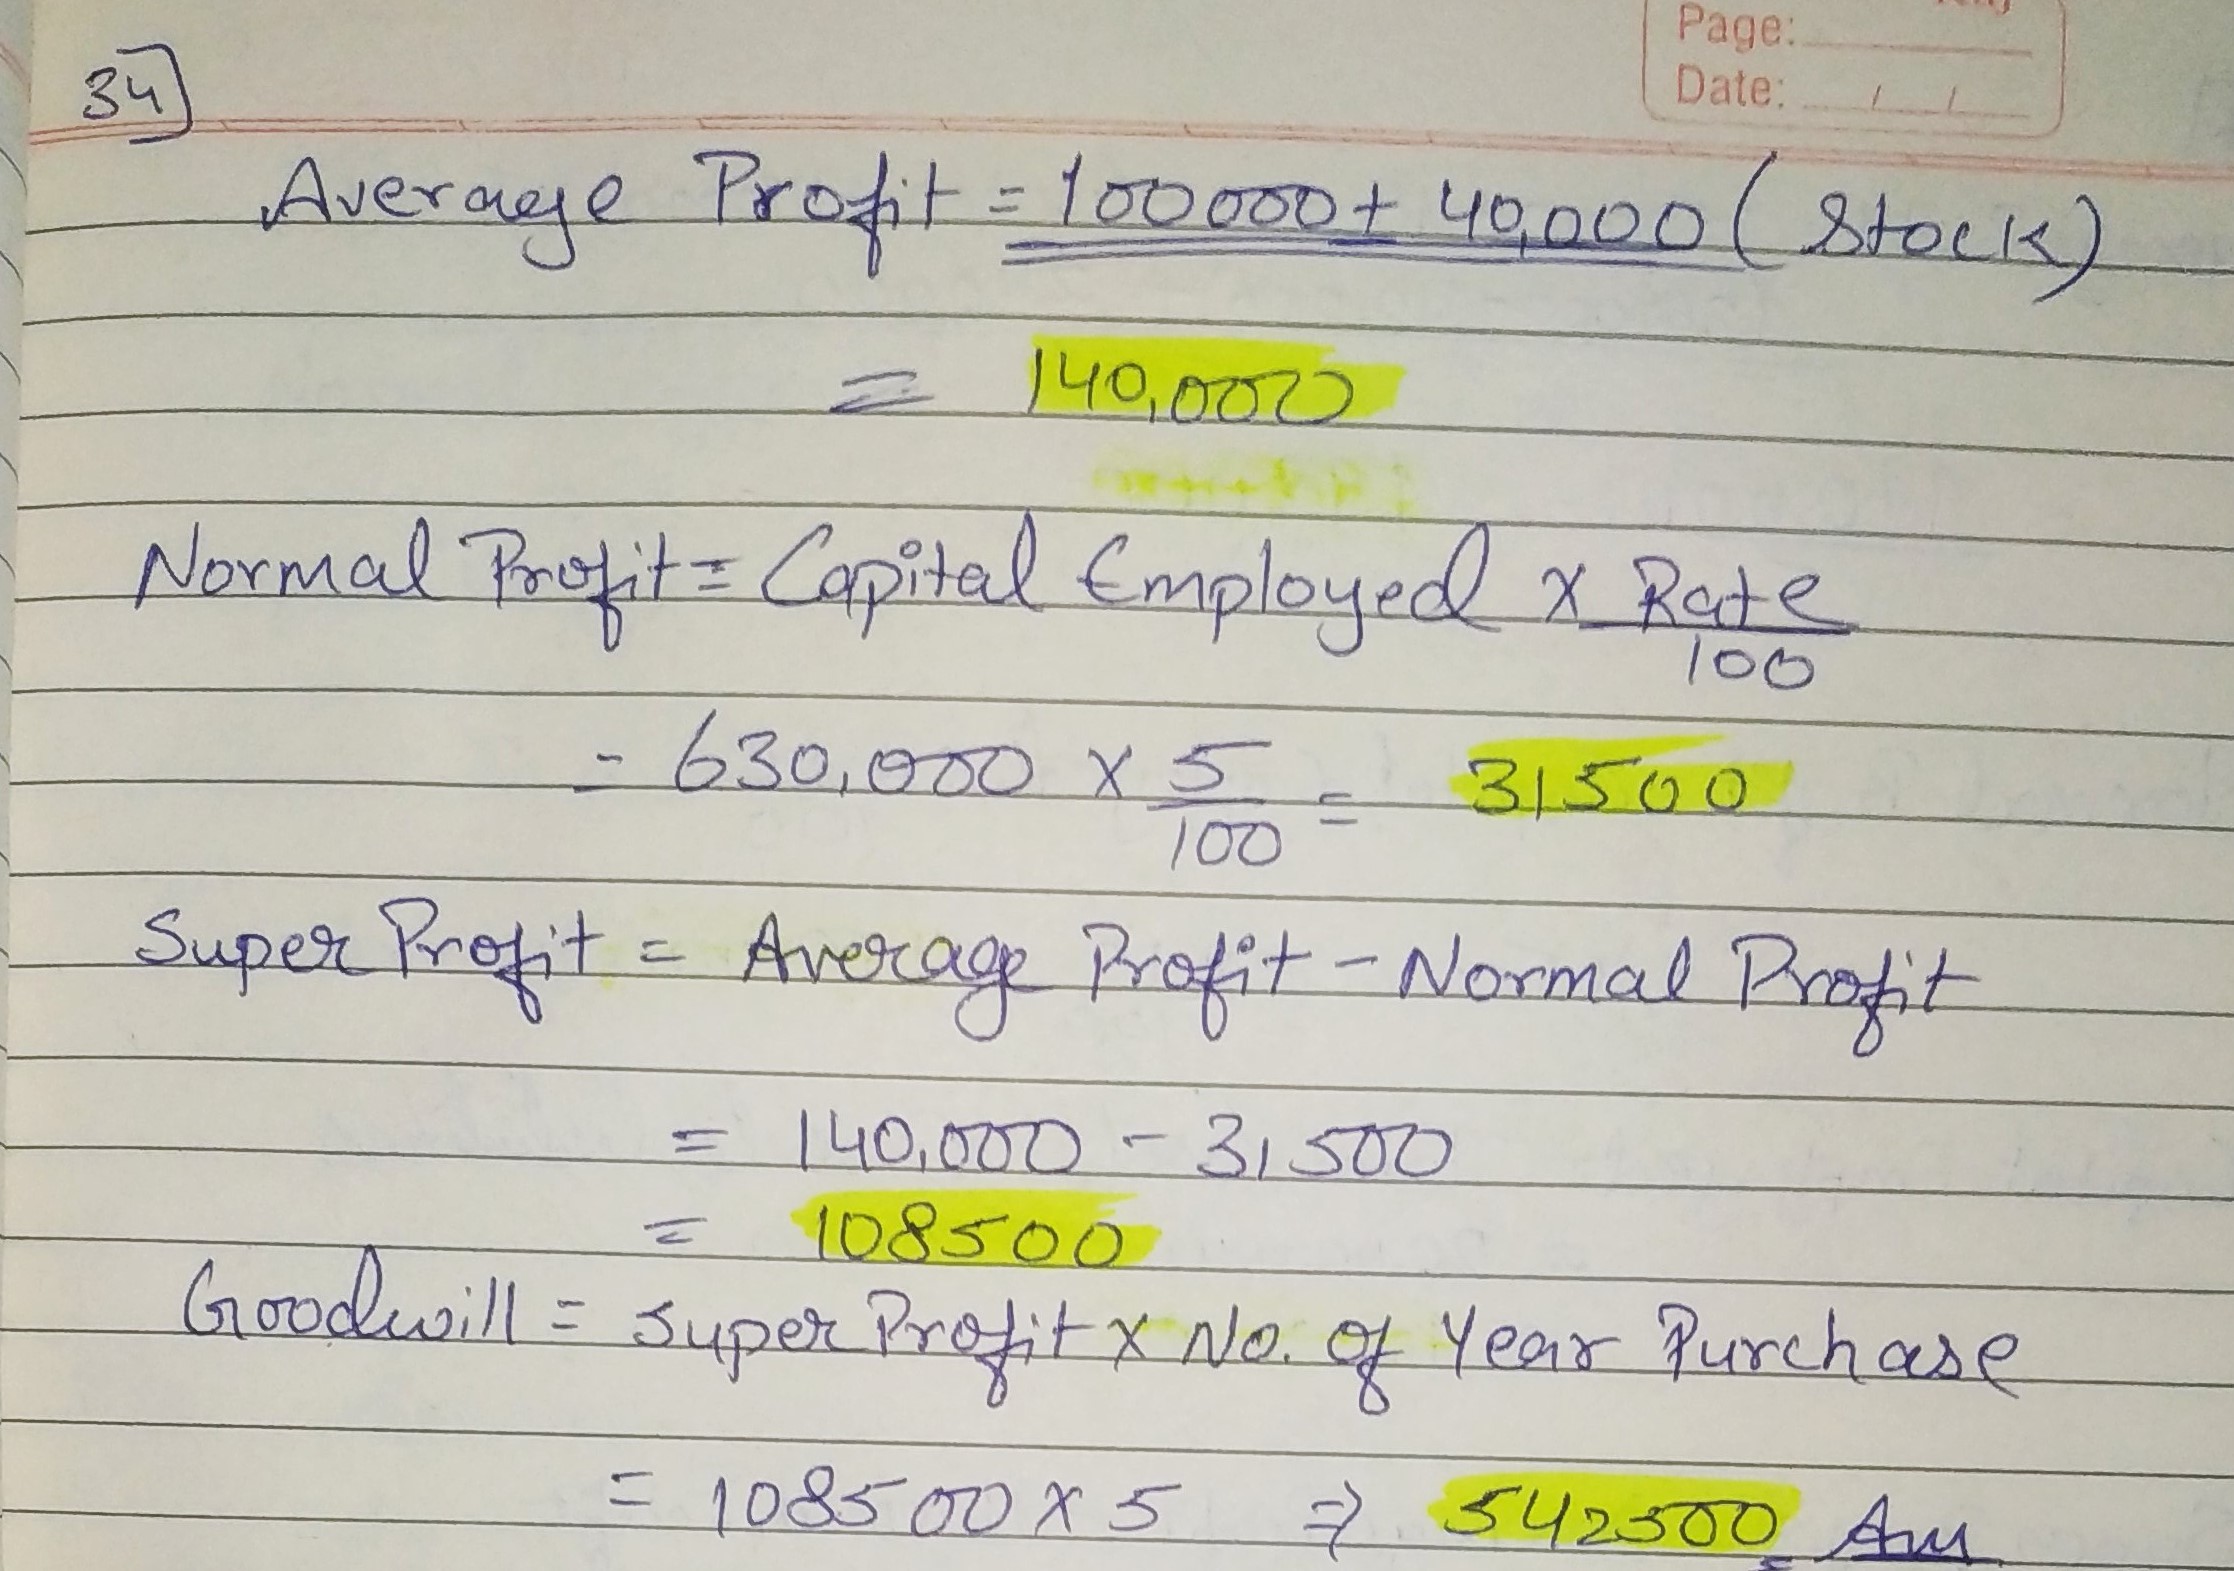 Page:
Date: / /
34]
Average Profit = 100000 + 40,000 ( Stock)
= 140,000
Normal Profit = Capital Employed x Rate/100
= 630,000 x 5/100 = 31500
Super Profit = Average Profit - Normal Profit
= 140,000 - 31500
= 108500
Goodwill = Super Profit x No. of Year Purchase
= 108500 x 5 ⇒ 542500 Ans